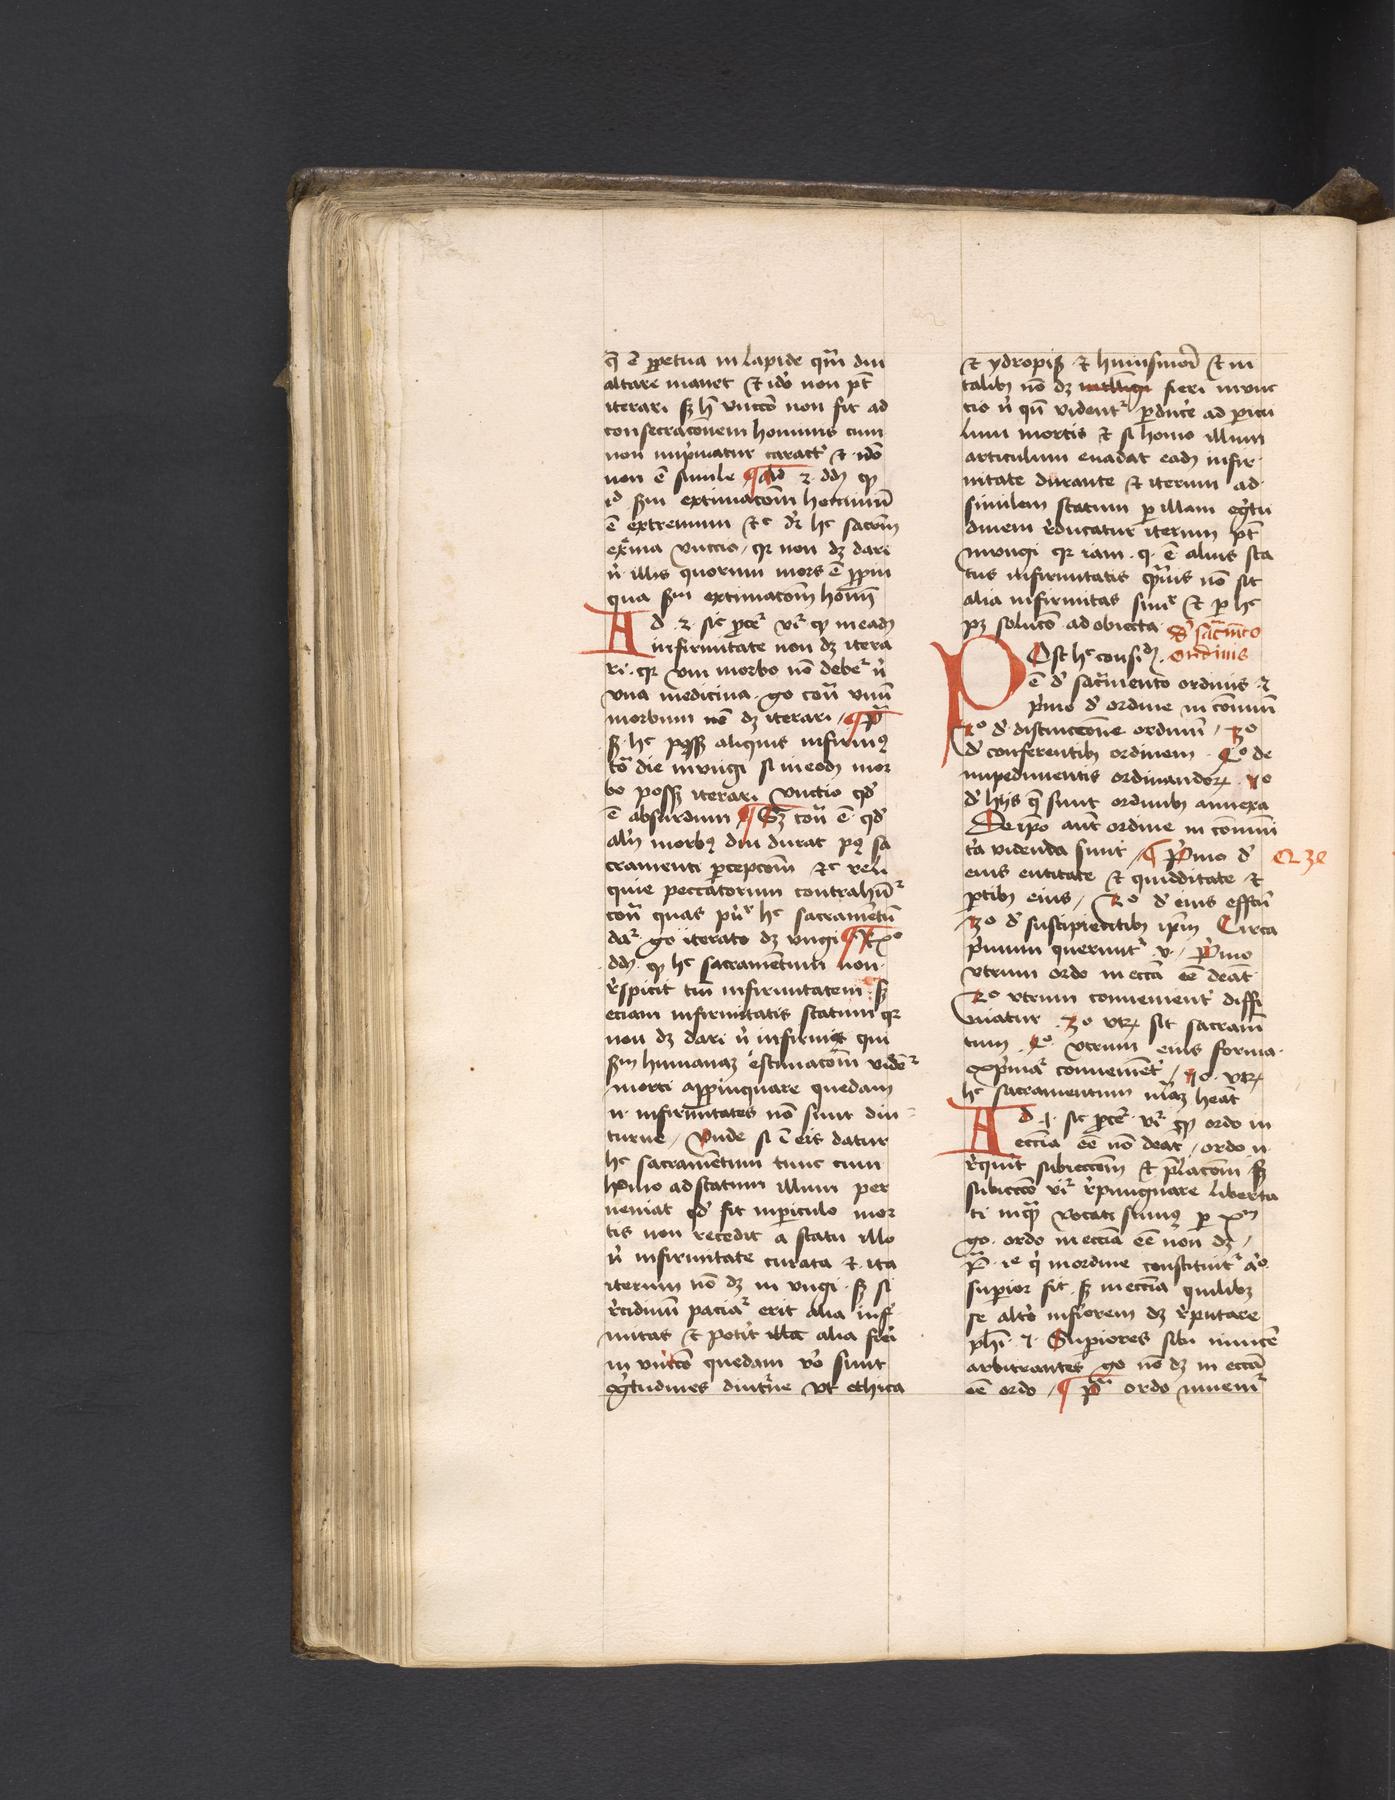 q̄ ē ꝑpetua in lapide qm̄ diu
altare manet Et ido non pt̄
iterari sꝫ hͨ vnctō non fit ad
consecracionem hominis cum
non inpͥmatur caract᷑ Et idō
non ē simile ¶ Ad 2 ddꝫ ꝙ
id scd̄m extimacōm hominū
ē extremum Etͨ dr̄ hͨ sacrm̄
exͣma vnccio / qꝛ non dꝫ dari
nͥ illis quorum mors ē ꝓpin
qua scd̄m extimacōm homī
Ad 2 sic ꝓcedit᷑ vr̄ ꝙ in eadē
infirmitate non dꝫ itera
ri qꝛ vni morbo nō debet᷑ nͥ
vna medicina go contͣ vnū
morbum nō dꝫ iterari / ¶ Pͣ
sꝫ hͨ posset aliquis infirmꝰ
totͣ die inungi si in eod̄ mor
bo posset iterari vnctio qd̛
ē absurdum ¶ Sꝫ contͣ ē qd̛
aliqn̄ morbꝰ diu durat pꝰ sa
cramenti ꝑcepcōm Etͨ reli
quie peccatorum contrahūt᷑
contͣ quas pͥncͥpalr̄ hͨ sacramentū
dat᷑ go iterato dꝫ vngi ¶ Rͦ
ddꝫ ꝙ hͨ sacramentum non
respicit tm̄ infirmitatem sꝫ
eciam infirmitatis statum qꝛ
non dꝫ dari nͥ infirmis qui
scd̄m humanaꝫ estimacōm vident᷑
morti appropinquare quedam
n̄ infirmitates nō sunt diu
turne / Vnde si ī eis datur
hͨ sacramentum tunc cum
homo ad statum illum per
ueniat qd̛ sit in periculo mor
tis non recedit a statu illo
nͥ infirmitate curata Et ita
iterum nō dꝫ in vngi sꝫ si
recidiuū paciat᷑ erit alia infir
mitas Et poterit illa alia fieri
in vnctō quedam vͦ sunt
egritudines diuturne vt ethica
Et ydropisis Et huiusmodi Et in
talibꝫ nō dꝫ fieri inunc
tio nͥ qn̄ vident᷑ ꝑducere ad pericu
lum mortis Et si homo illum
articulum euadat eadē infir
mitate durante Et iterum ad
similem statum ꝑ illam egritu
dinem reducatur iterum pt̄
inungi qꝛ iam q̛ ē alius sta
tus infirmitatis quāuis nō sit
alia infirmitas simͬ Et ꝑ hͨ
pꝫ solutō ad obiecta De sacramēto
ordinis
POst hͨ considꝫ
ē de sacramento ordinis Et
pͥmo de ordine in communi
2ͦ de distinctione ordinū / 3ͦ
de conferentibꝫ ordinem 4ͦ de
impedimentis ordinandoꝝ 5ͦ
de hijs q̄ sunt ordinibꝫ annexa
De ipo aut̄ ordine in communi
tͣ videnda sunt / ¶ Pͥmo de
eius entitate Et quidditate Et
ꝑtibꝫ eius / 2ͦ de eius effectu
3ͦ de suscipientibꝫ ipm̄ Circa
pͥmum querunt᷑ v / Pͥmo
vtrum ordo in eccͣ eē debeat
2ͦ vtrum conuenient᷑ diffi
niatur 3ͦ vtꝝ sit sacramē
tum 4ͦ vtrum eius forma
expͥmat᷑ conuenient᷑ / 5ͦ vtꝝ
hͨ sacramentum mͣaꝫ habeat
Ad 1 sic ꝓcedit᷑ vr̄ ꝙ ordo in
ecclesia eē non debeat / ordo n̄
requirit subiectōm Et prelacōm sꝫ
subiectō vr̄ repungnare liberta
ti in quā vocati sumꝰ ꝑ xpm̄
go ordo in ecclesia eē non dꝫ /
Pͣ iͤ qui in ordine constituit᷑ alͦ
superior fit sꝫ in ecclesia quilibꝫ
se altͦo inferiorem dꝫ reputare
phi 2 Superiores sibi inuicē
arbitrantes go nō dꝫ in eccͣ
eē ordo / ¶ Pͣ ordo inuenit᷑